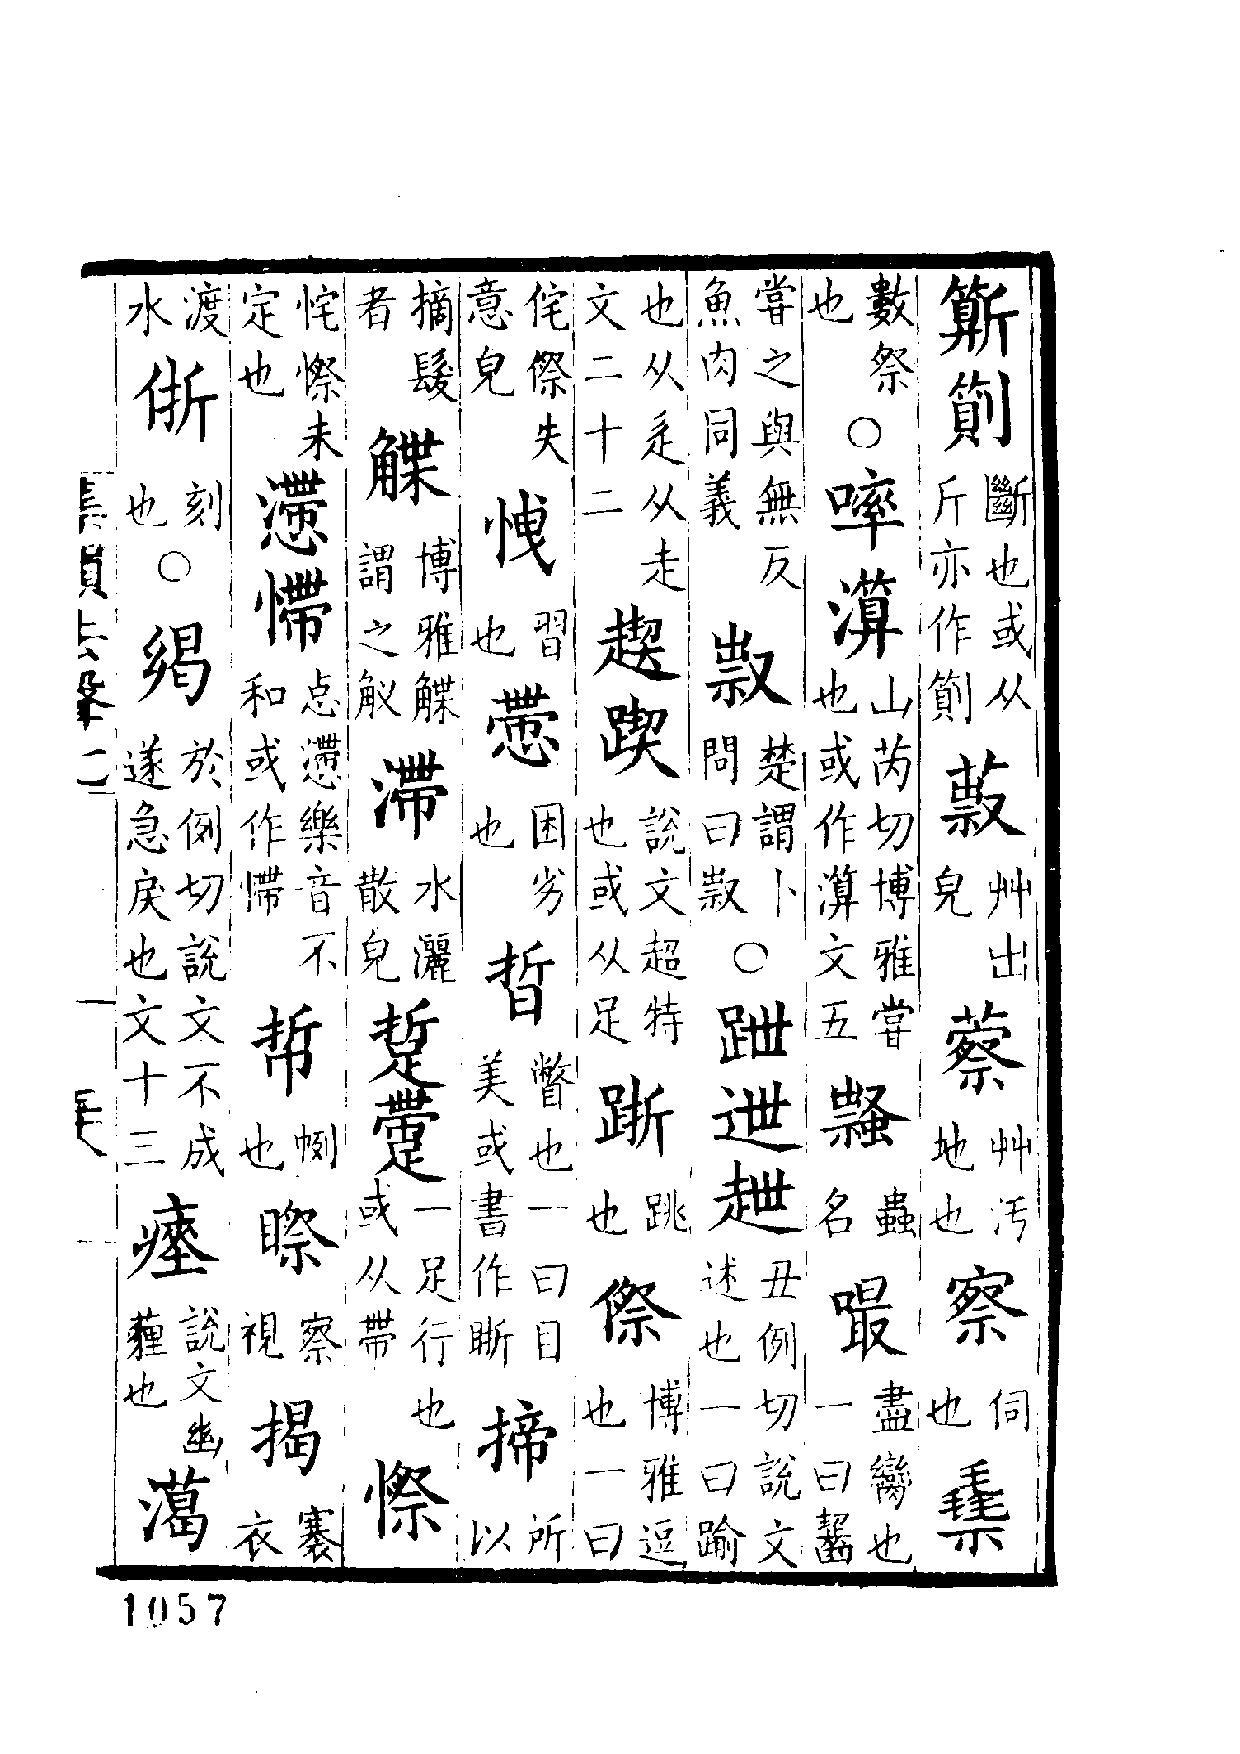 斷也或从斤亦作 艸出皃 蔡 艸汚地也 察 伺也
數祭也 ○ 啐 山芮切博雅嘗也或作 文五 蟲名 嘬 盡臠也一曰齧
嘗之與無反魚肉同義 㱁 楚謂卜問曰㱁 ○ 跇 迣 丑例切說文述也一曰踰
也从辵从走文二十二 說文超特也或从足 跳也 傺 博雅逗也一曰
侘傺失意皃 㤞 習也 慸 困劣也 晢 瞥也一曰目美或書作晣 揥 所以
摘髮者 博雅 謂之 滯 水灑散皃 一足行也或从帶 憏
㤞憏未定也 懘 怗懘樂音不和或作 也 察視 揭 褰衣
渡水 刻也 ○ 於例切說文不成遂急戾也文十三 瘞 說文幽薶也
集韻去聲七
1057